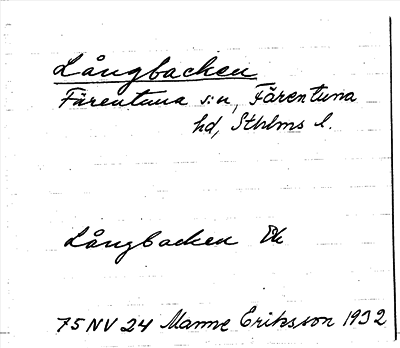 Långbacken
Färentuna s:n, Färentuna
hd, Sthlms l.
Långbacken Ek
75 NV 24 Manne Eriksson 1932